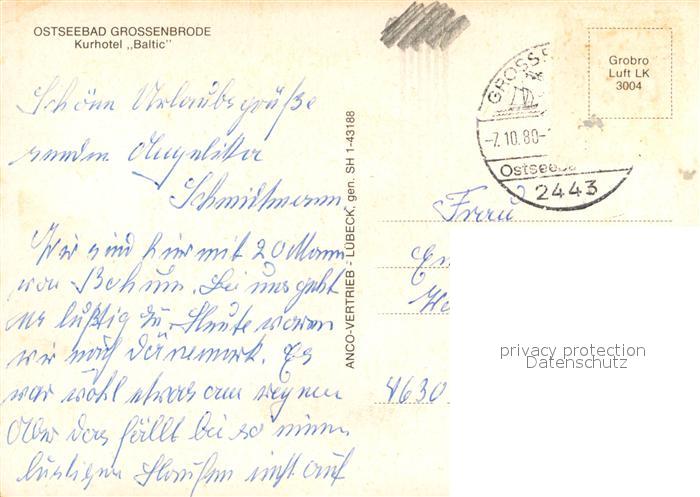 OSTSEEBAD GROSSENBRODE
Kurhotel „Baltic"
Schöne Urlaubsgrüße
senden Angelika
Schmidtmann.
Wir sind hier mit 20 Mann
von Bochum. Bei uns geht
es lustig zu. Heute waren
wir nach Dänemark. Es
war wohl etwas am regnen
Aber das fällt bei so einem
lustigen Haufen nicht auf
ANCO-VERTRIEB - LÜBECK, gen. SH 1-43188
GROSSE
-7.10.80-
Ostseeb
2443
Grobro
Luft LK
3004
Frau
4630
privacy protection
Datenschutz